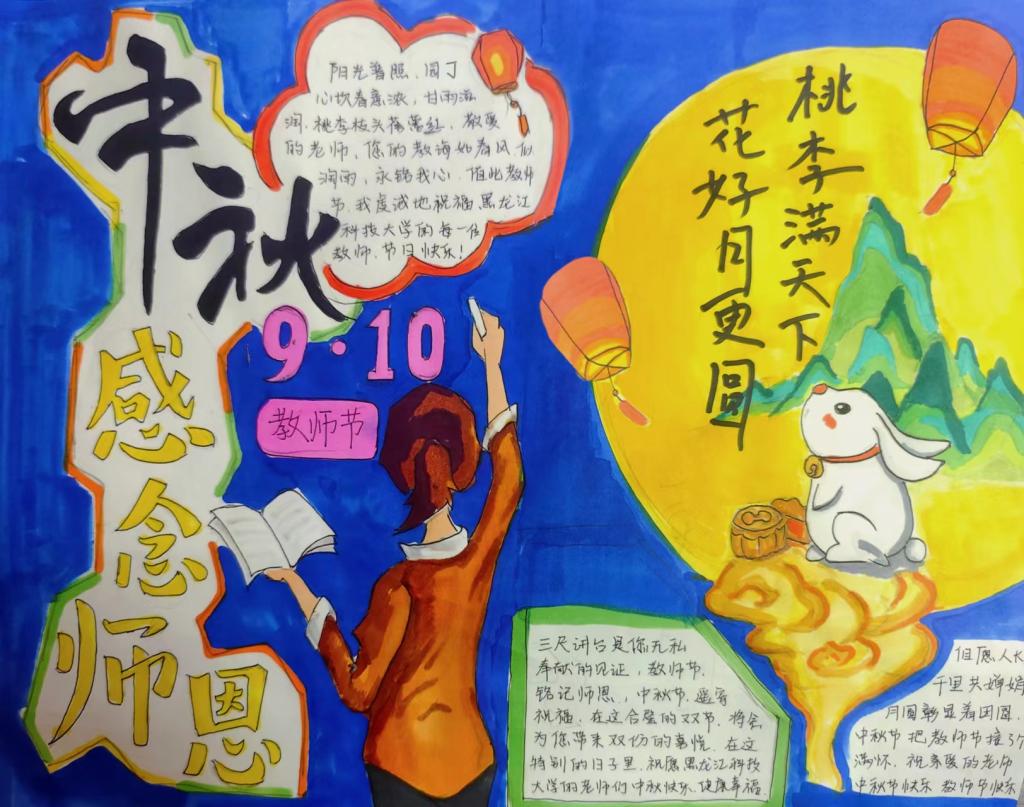 中秋
感念师恩
阳光普照,园丁
心坎春意浓,甘雨滋
润.桃李枝头蓓蕾红,敬爱
的老师,您的教诲如春风似
润雨,永铭我心.值此教师
节.我虔诚地祝福黑龙江
科技大学的每一位
教师.节日快乐!
9·10
教师节
桃李满天下
花好月更圆
三尺讲台是你无私
奉献的见证,教师节.
铭记师恩,中秋节.遥寄
祝福.在这合璧的双节.将会
为您带来双份的喜悦.在这
特别的日子里.祝愿黑龙江科技
大学的老师们中秋快乐.健康幸福.
但愿人长
千里共婵娟
月圆彰显着团圆.
中秋节把教师节撞了个
满怀.祝亲爱的老师
中秋节快乐教师节快乐